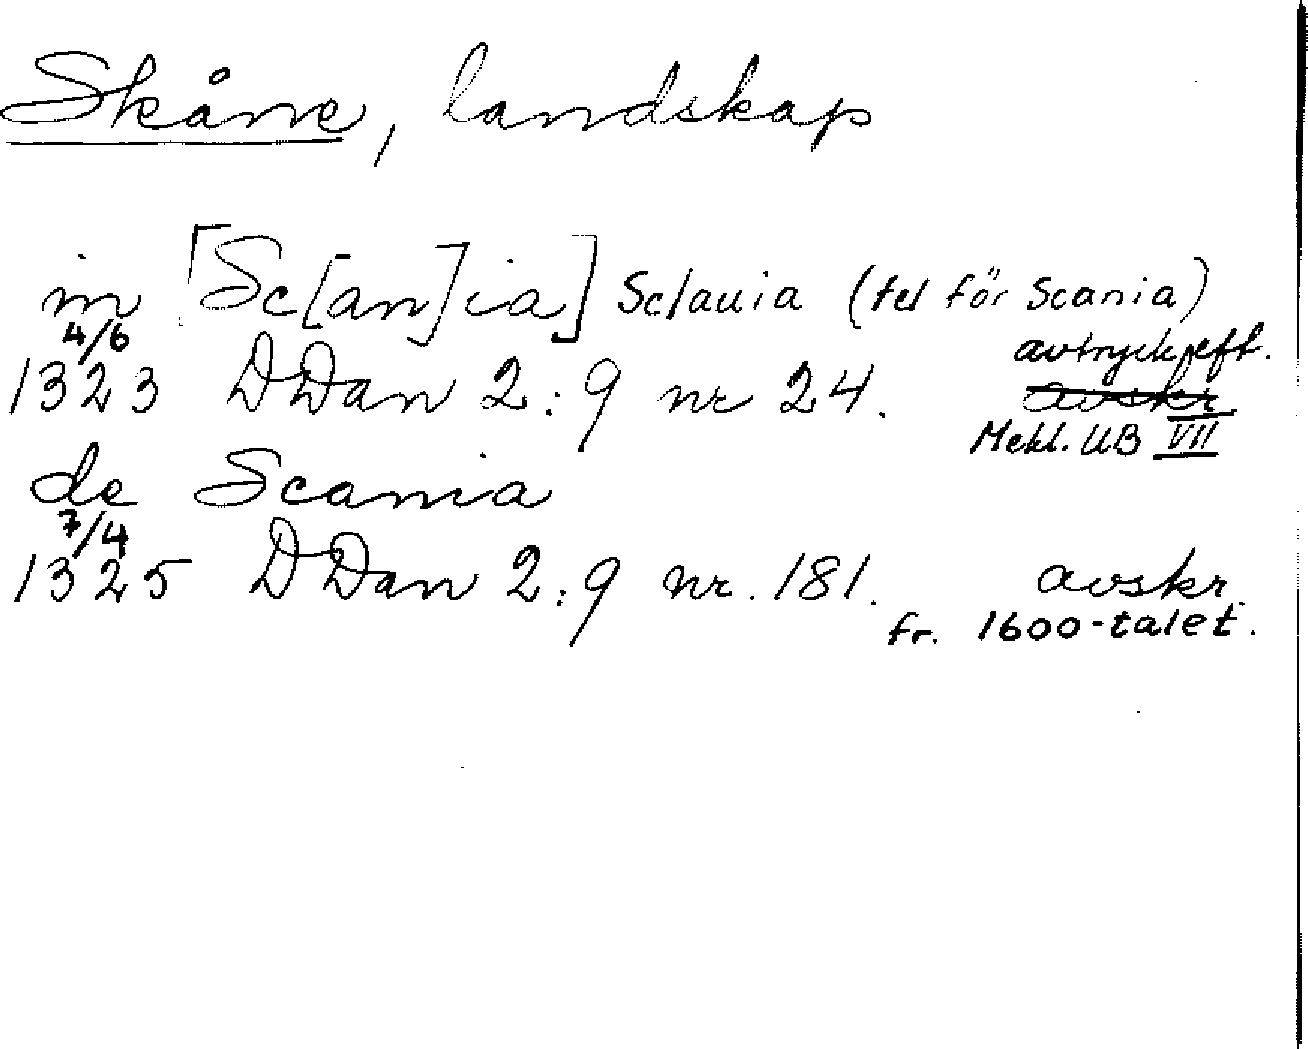 Skåne, landskap
in [Sc[an]ia] Sclauia (fel för Scania)
4/6 avtryck eft.
1323 DDan 2:9 nr 24. avskr
Mekl. UB VII
de Scania
7/4
1325 DDan 2:9 nr. 181. avskr.
fr. 1600-talet.